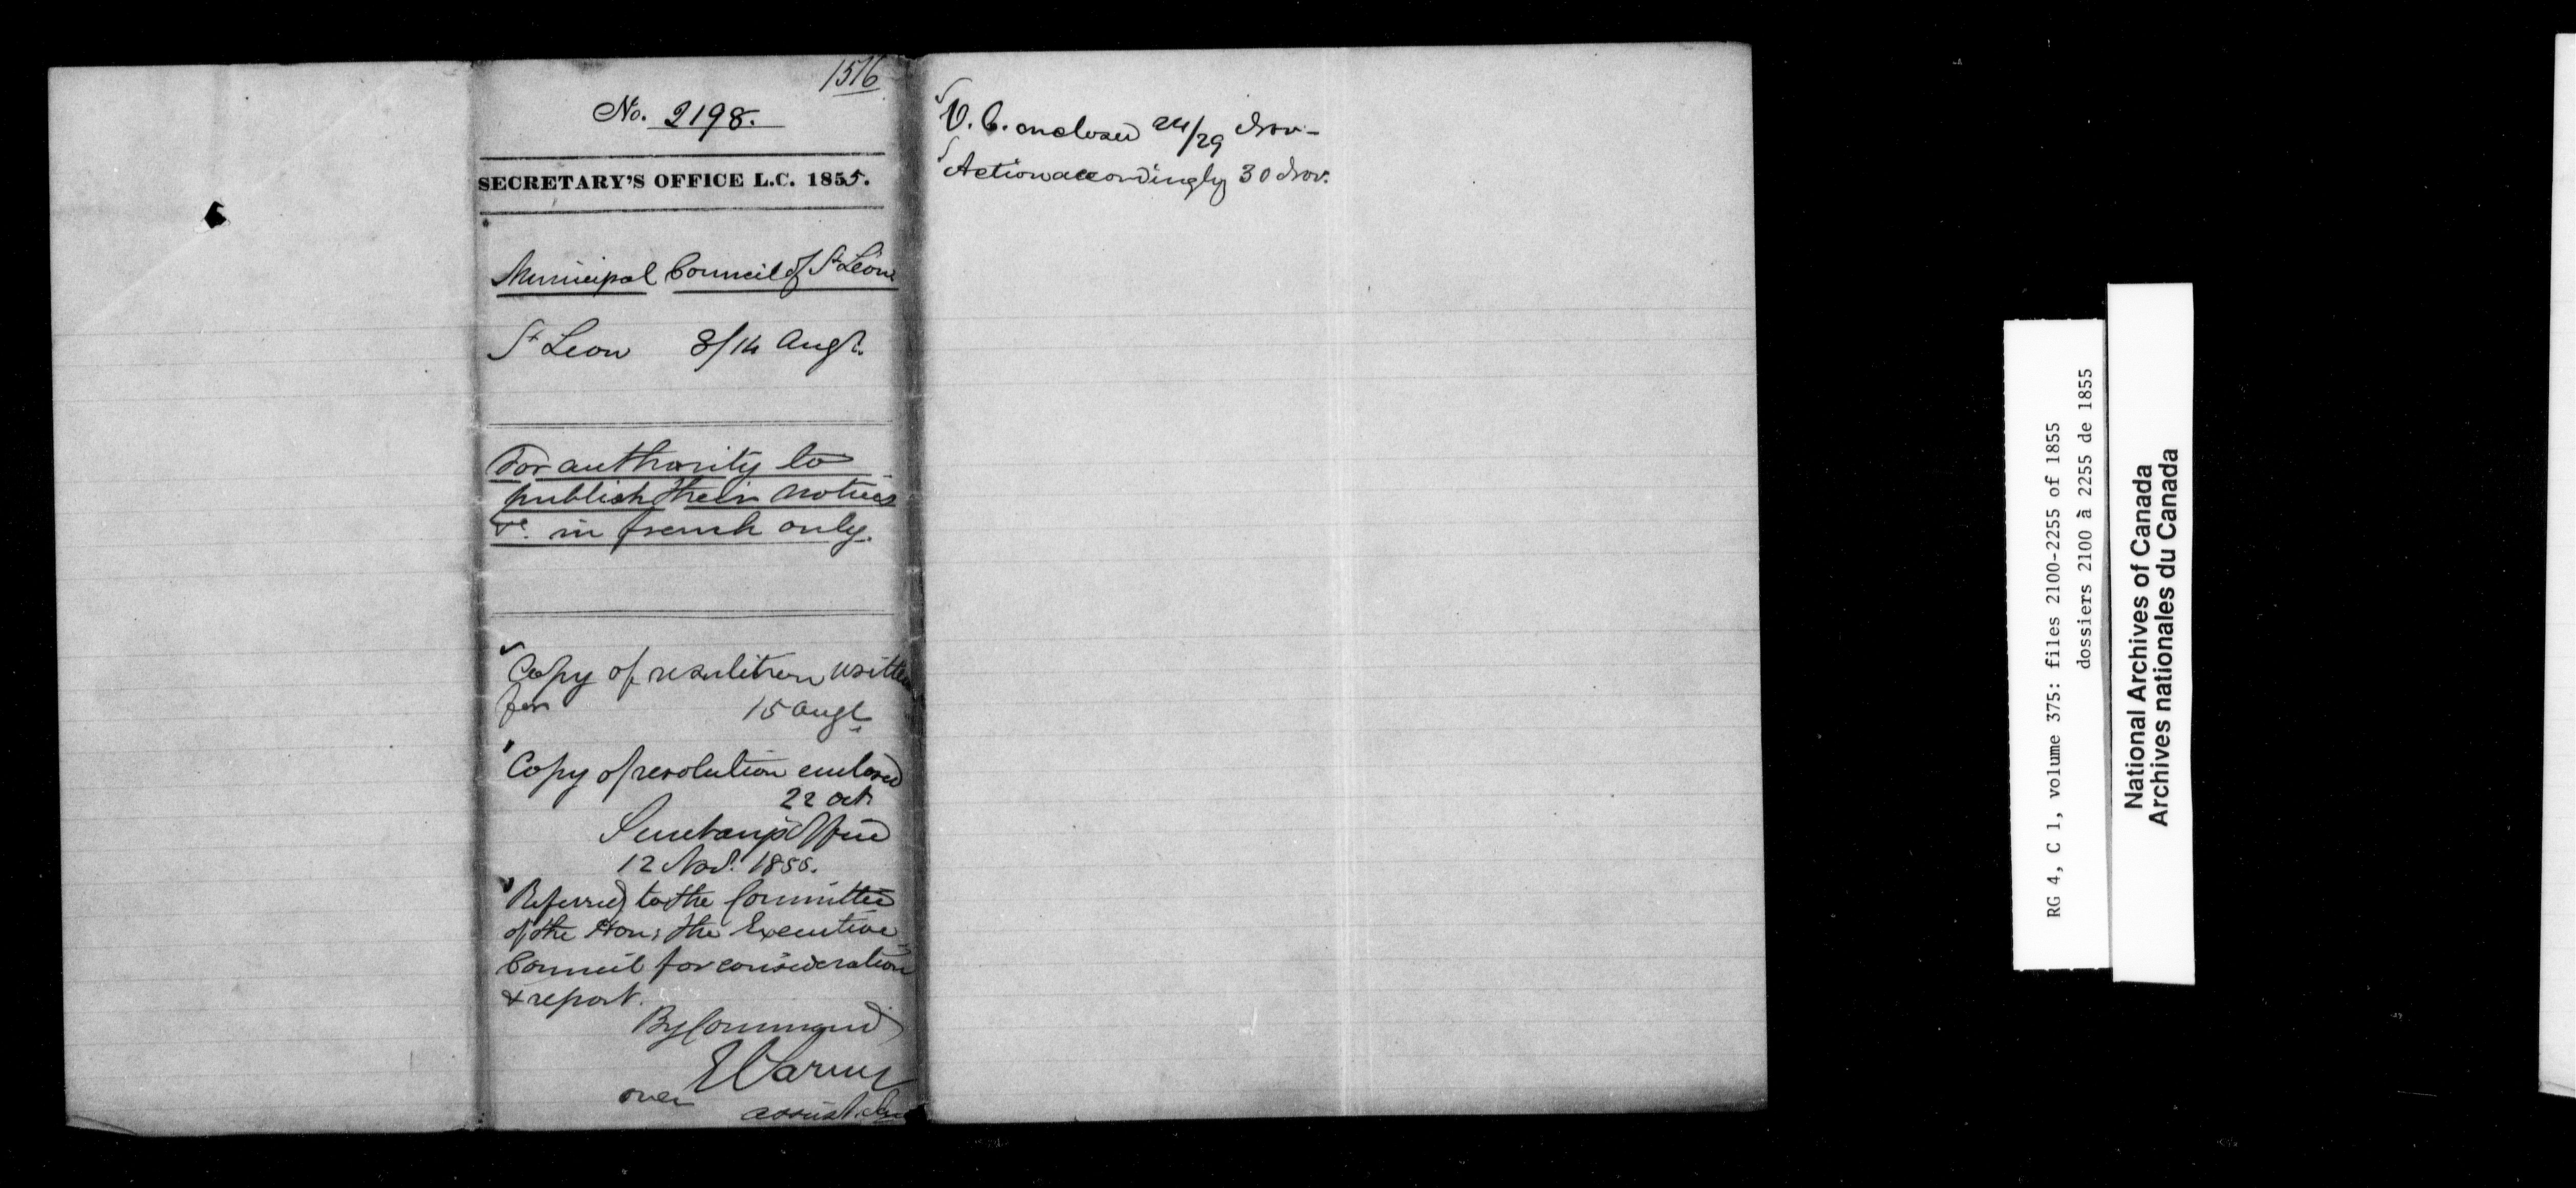 1516
No. 2198.
SECRETARY'S OFFICE L.C. 1855.
Municipal Council of St Léon
St Leon 8/14 Augt.
For authority to
publish their notices
&c. in french only.
Copy of resolution written
for 15 Augt
Copy of resolution enclosed
22 Oct
Secretary's Office
12 Nov. 1855.
Referred to the Committee
of the Hon: the Executive
Council for consideration
& report.
By Command
E Parent
over assist. Sec
O. C. enclosed 24/29 Nov.-
Action accordingly 30 Nov.
RG 4, C 1, volume 375: files 2100-2255 of 1855
dossiers 2100 à 2255 de 1855
National Archives of Canada
Archives nationales du Canada